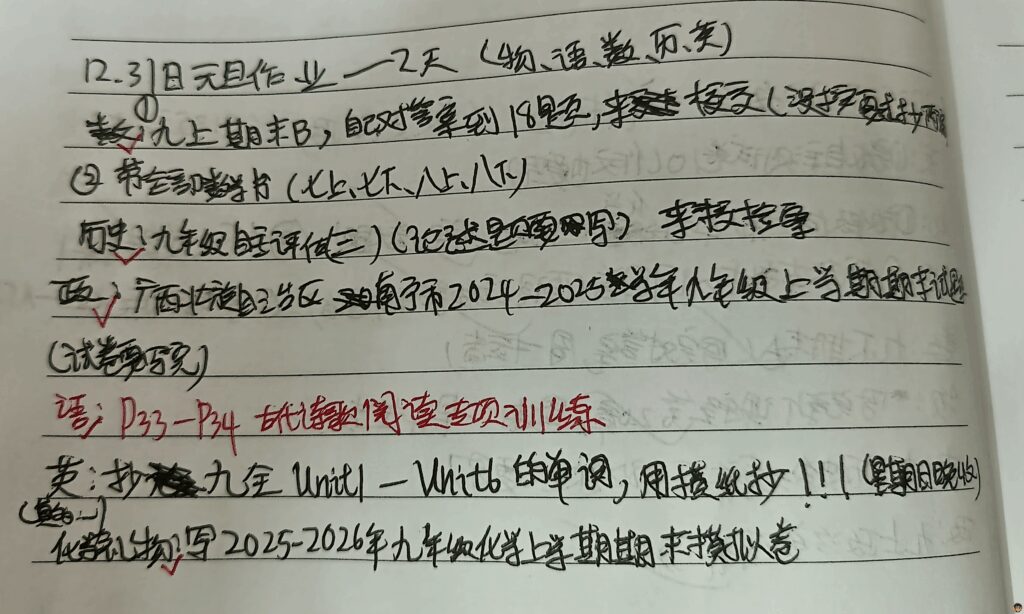 12.31日元旦作业一2天（物、语、数、历、英）
数:①九上期末B，自己对答案到18题，提交（没
②带全部数学书（七上、七下、八上、八下）
历史:九年级自主评估（三）（论述题要写）
政:广西壮族自治区南宁市2024-2025学年九年级上学期期末试题
（试卷要写完）
语:P33-P34 古代诗歌阅读专项训练
英:抄九全Unit1-Unit6的单词，用横纸抄!!!（星期日晚收）
化 物:写2025-2026年九年级化学上学期期末模拟卷